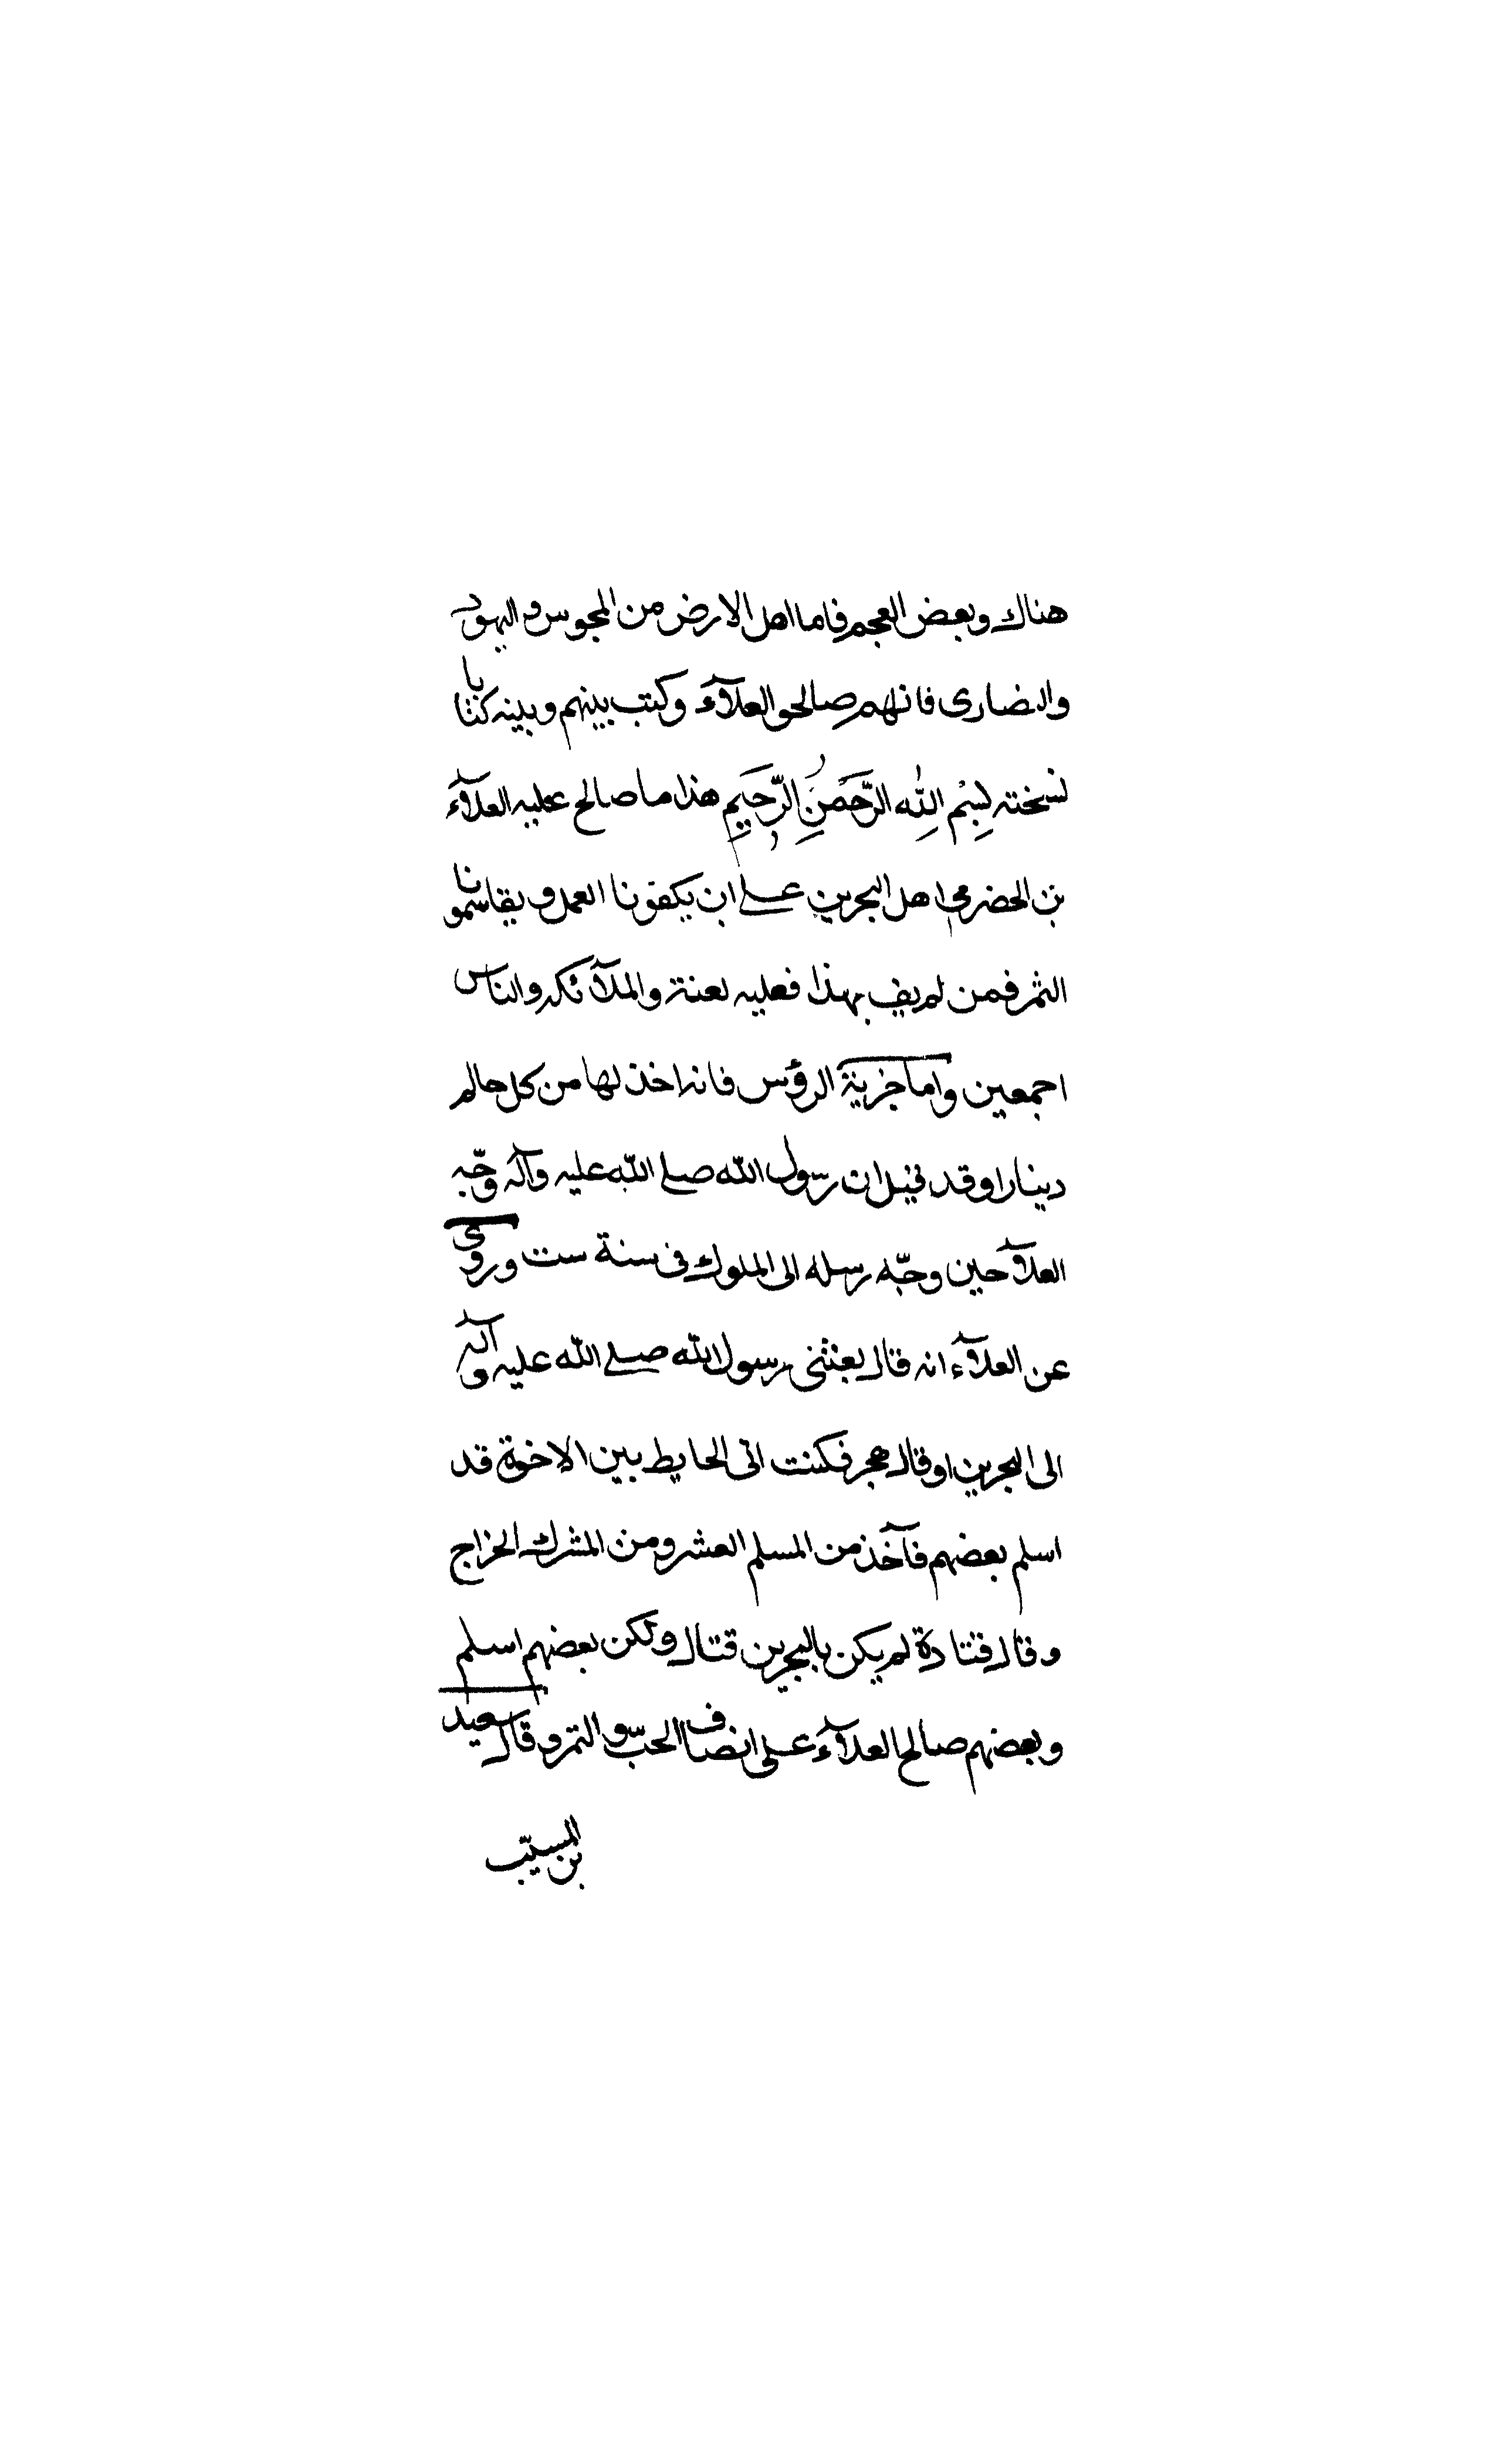 هناك وبعض العجم فاما اهل الارض من المجوس واليهود
والنصارى فانهم صالحوا العلآء وكتب بينهم وبينه كتابا
نسخته بِسْمِ اللهِ الرَّحمَنِ الرَّحيَمِ هذا ما صالح عليه العلآء
بن الحضرمي اهل البحرين على ان يكفونا العمل ويقاسمونا
الثمر فمن لم يف بهذا فعليه لعنة والملآئكه والناس
اجمعين واما جزية الرؤس فانه اخذ لها من كل حالم
دينارا وقد قيل ان رسول الله صلى الله عليه وآله وجّه
العلآ حين وجّه رسله الى الملوك فى سنة ست وروى
عن العلآء انه قال بعثنى رسول الله صلى الله عليه وآله
الى البحرين او قال هجر فكنت اتى الحايط بين الاخوة قد
اسلم بعضهم فآخذ من المسلم العشر ومن المشرك الخراج
وقال قتادة لم يكن بالبحرين قتال ولكن بعضهم اسلم
وبعضهم صالح العلآء على انصاف الحبّ والتمر وقال سعيد
بن المسيّب